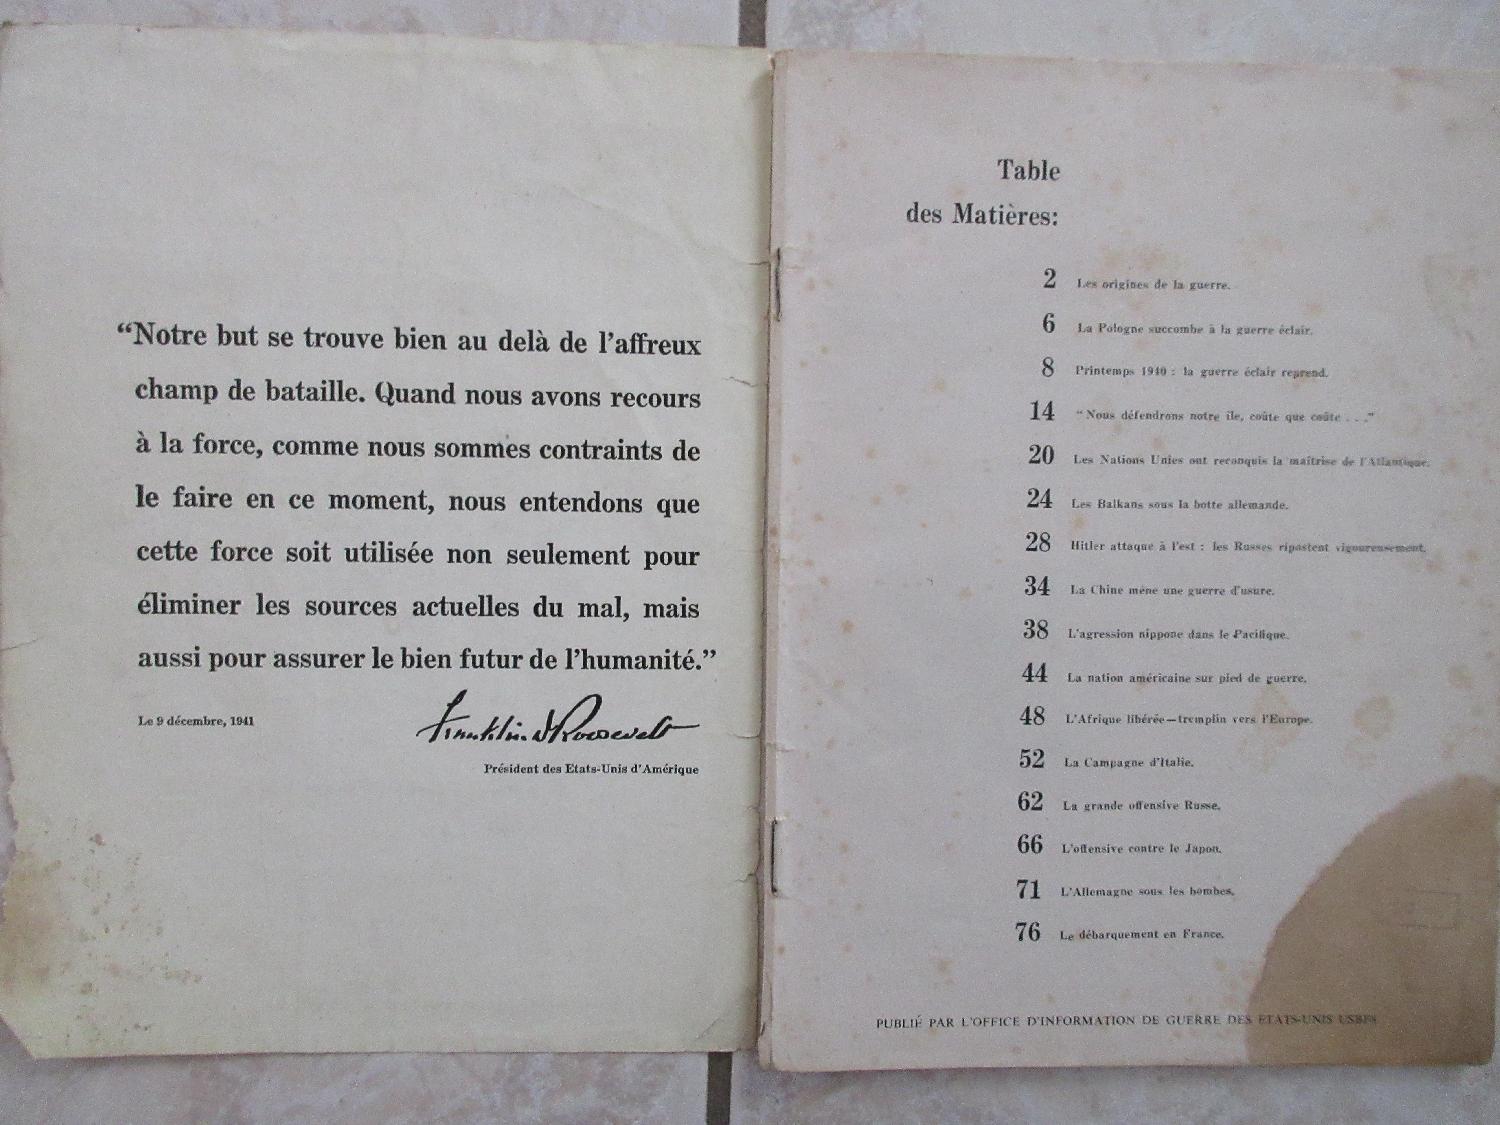 “Notre but se trouve bien au delà de l’affreux
champ de bataille. Quand nous avons recours
à la force, comme nous sommes contraints de
le faire en ce moment, nous entendons que
cette force soit utilisée non seulement pour
éliminer les sources actuelles du mal, mais
aussi pour assurer le bien futur de l’humanité.”
Le 9 décembre, 1941
Franklin D Roosevelt
Président des Etats-Unis d’Amérique
Table
des Matières:
2 Les origines de la guerre.
6 La Pologne succombe à la guerre éclair.
8 Printemps 1940 : la guerre éclair reprend.
14 “Nous défendrons notre île, coûte que coûte . . .”
20 Les Nations Unies ont reconquis la maîtrise de l’Atlantique.
24 Les Balkans sous la botte allemande.
28 Hitler attaque à l’est : les Russes ripostent vigoureusement.
34 La Chine mène une guerre d’usure.
38 L’agression nippone dans le Pacifique.
44 La nation américaine sur pied de guerre.
48 L’Afrique libérée—tremplin vers l’Europe.
52 La Campagne d’Italie.
62 La grande offensive Russe.
66 L’offensive contre le Japon.
71 L’Allemagne sous les bombes.
76 Le débarquement en France.
PUBLIÉ PAR L’OFFICE D’INFORMATION DE GUERRE DES ETATS-UNIS